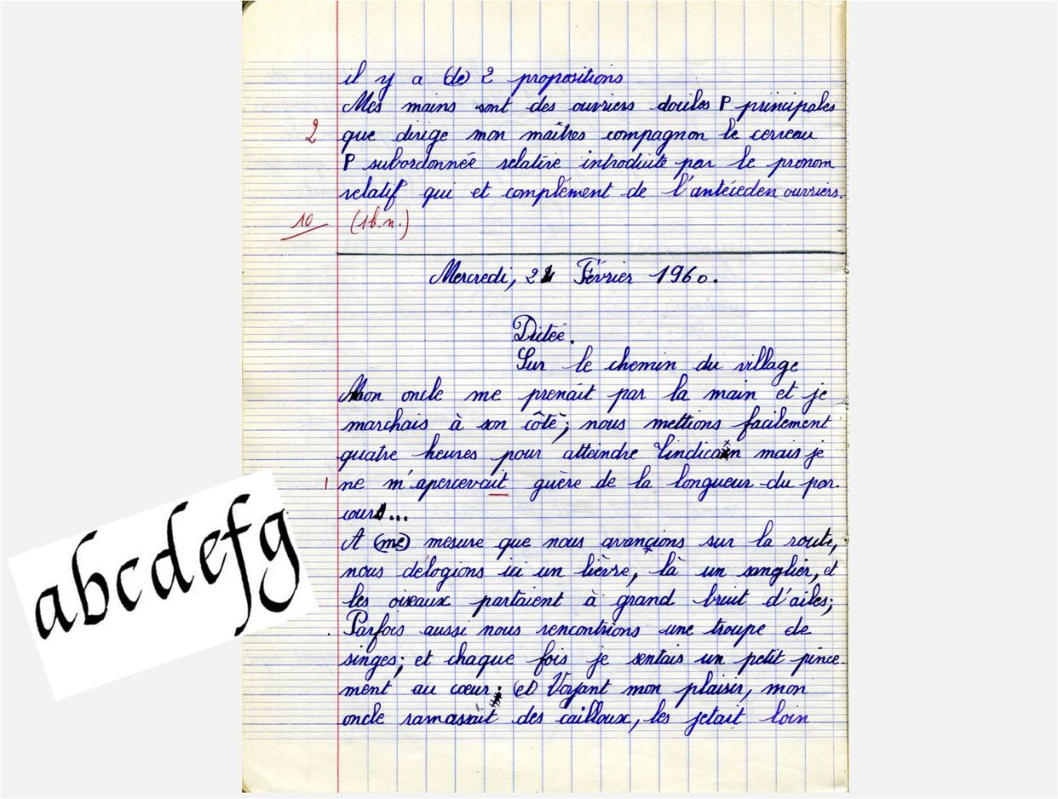 il y a (de) 2 propositions
Mes mains sont des ouvriers dociles P principales
2 que dirige mon maîtres compagnon le cerceau
P subordonnée relative introduite par le pronom
relatif qui et complèment de l'antéceden ouvriers.
10 (tb.n.)
Mercredi, 24 Février 1960.
Dictée.
Sur le chemin du village
Mon oncle me prenait par la main et je
marchais à son côtè; nous mettions facilement
quatre heures pour atteindre Tindican mais je
1 ne m'apercevait guère de la longueur du par-
cours...
A (me) mesure que nous avançions sur la route,
nous délogions ici un lièvre, là un sanglier, et
les oiseaux partaient à grand bruit d'ailes;
Parfois aussi nous rencontrions une troupe de
singes; et chaque fois je sentais un petit pince-
ment au cœur; (et) Voyant mon plaisir, mon
oncle ramassait des cailloux, les jetait loin
abcdefg